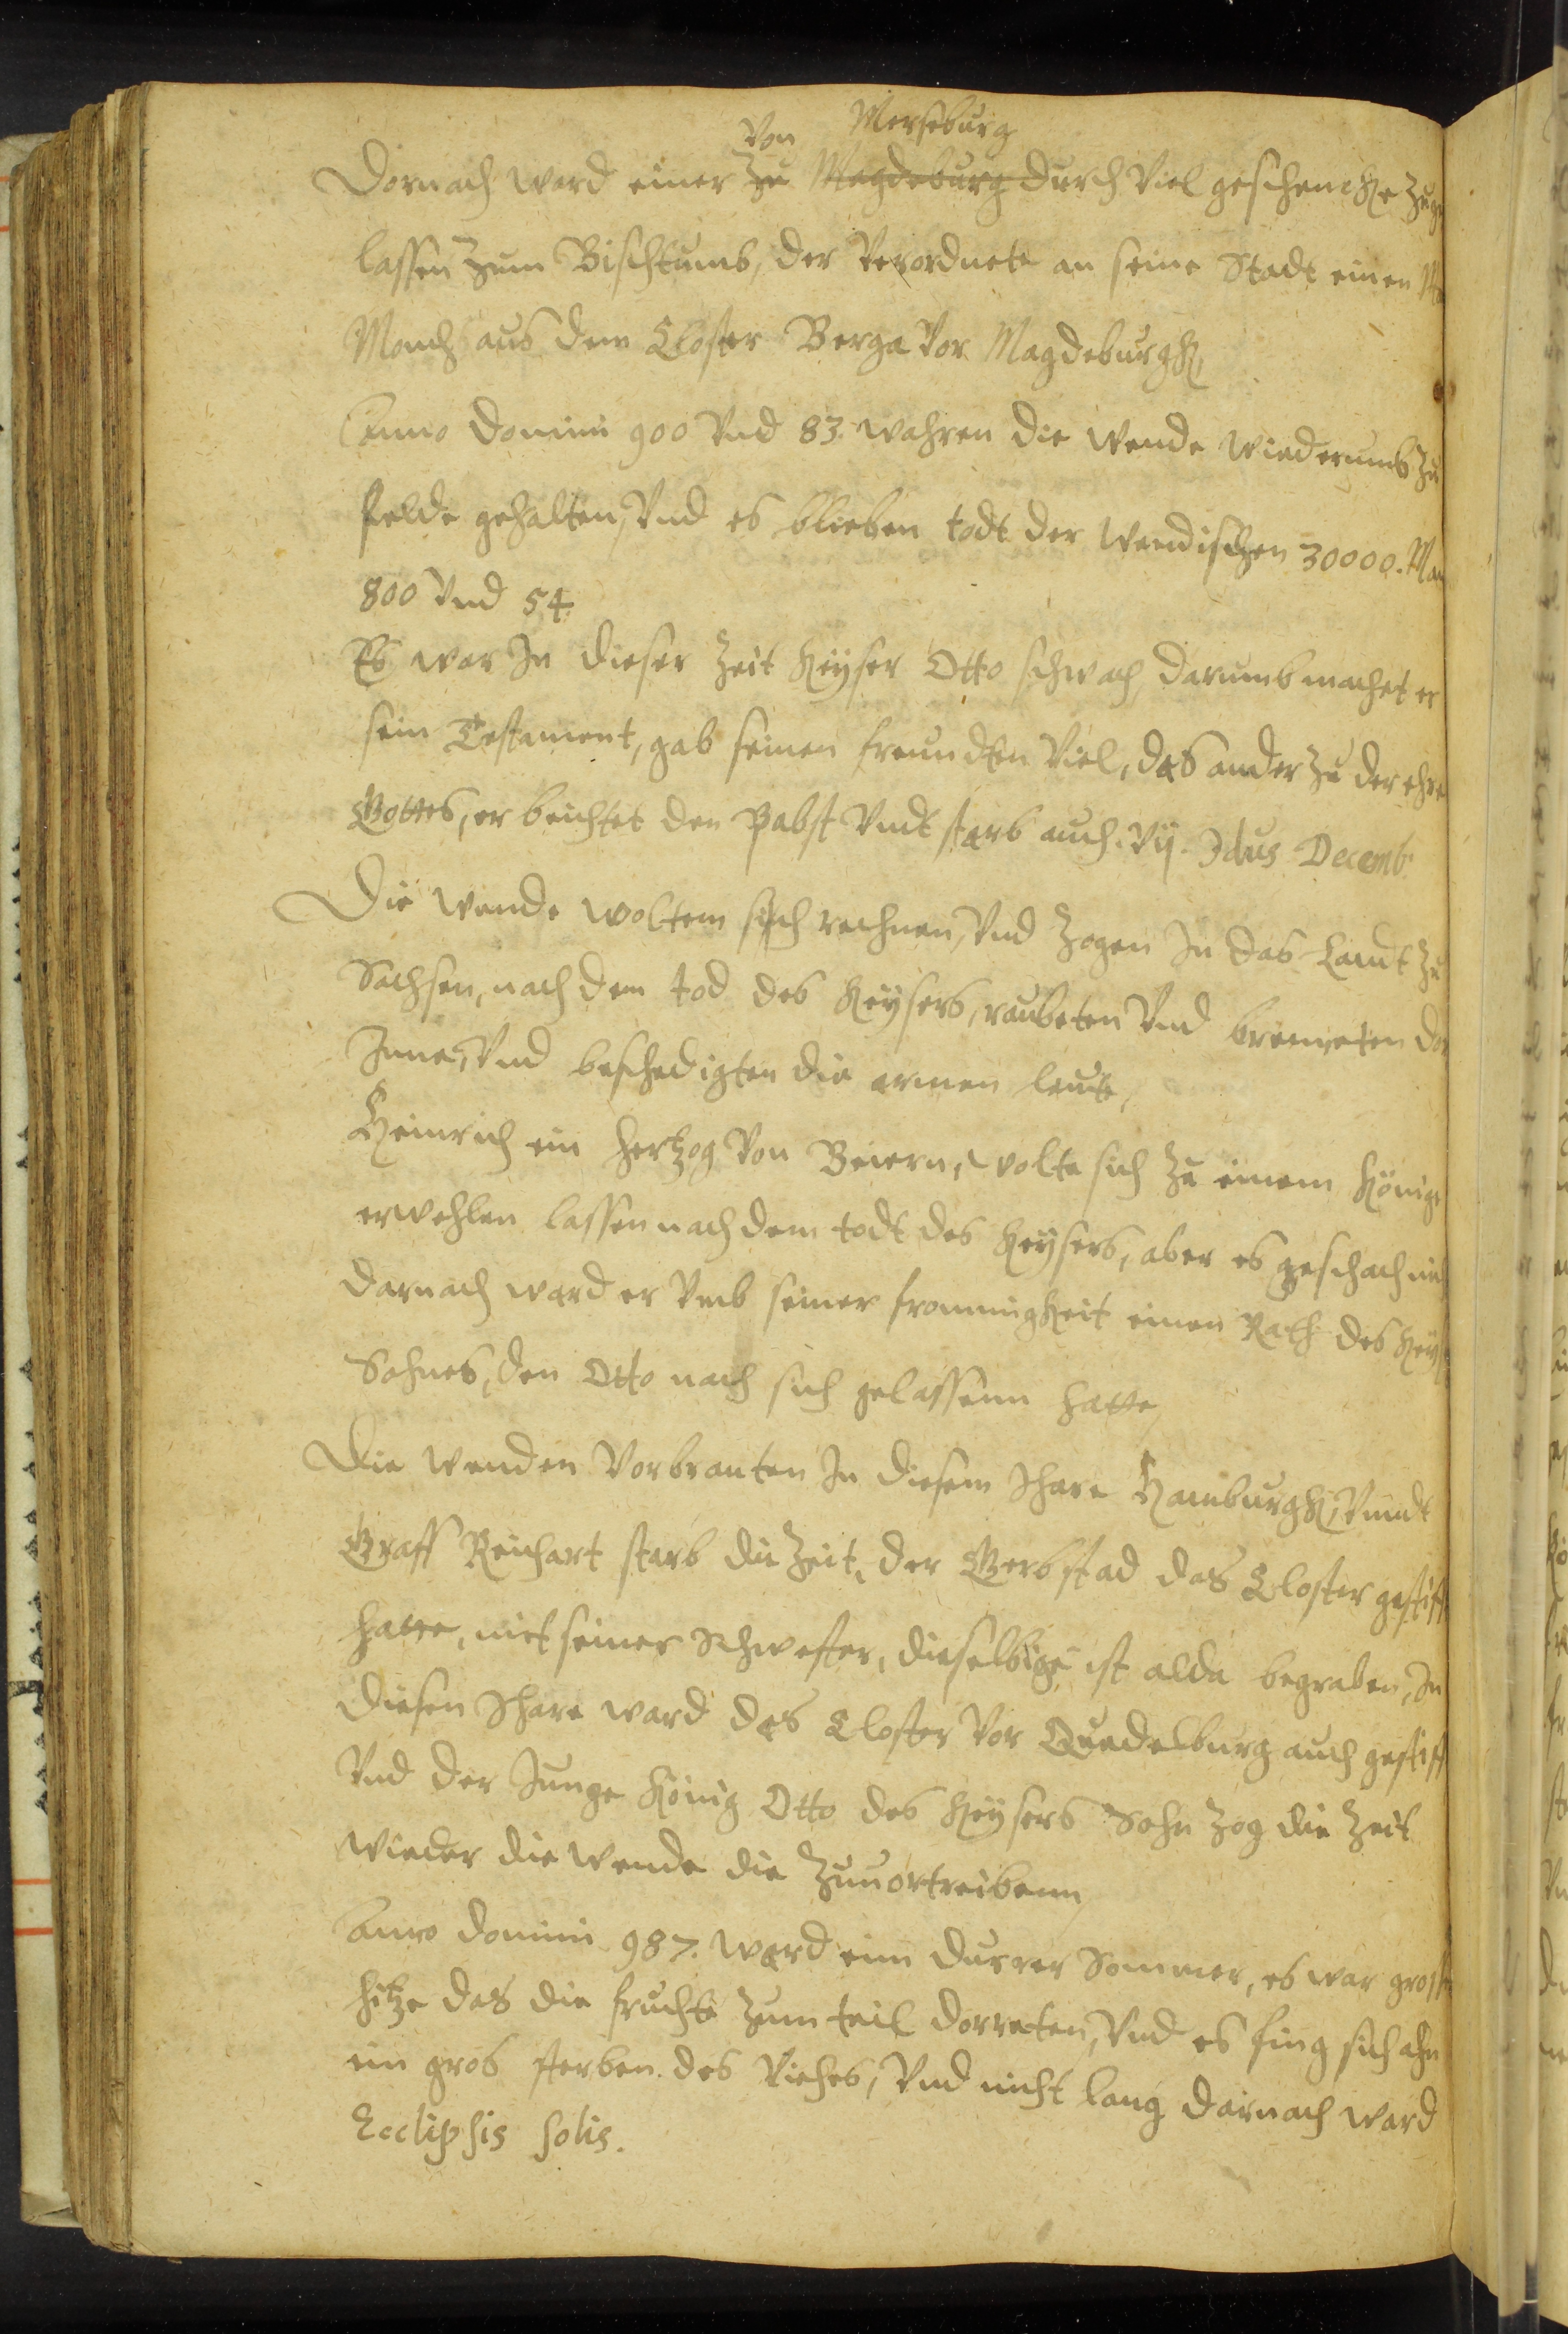 Von Merseburg
Dornach ward einer zu Magdeburg durch Viel geschencke zu
lassen zum Bischtumb, der Verordnete an seine Stadt einen
Monch aus dem Closter Berga Vor Magdeburgk,
Anno Domini 900 Vnd 83. wahren die Wende wiederumb zu
felde gehalten, Vnd es blieben todt der Wendischen 30000. Man
800 Vnd 54.
Es war In dieser Zeit Keyser Otto schwach, darumb machet er
sein Testament, gab seinen freundten Viel, das ander zu der ehre
Gottes, er beichtet den Pabst Vndt starb auch. Vij. Idus Decemb.
Die Wende woltem sich rechnen, Vnd zogen In das Landt zu
Sachsen, nach dem tod des Keysers, raubeten Vnd branneten dor
Inne, Vnd beschedigten die armen leute,
Heinrich ein Hertzog Von Beiern, wolte sich zu einem Könige
erwehlen lassen nach dem todt des Keysers, aber es geschach nich
darnach ward er Vmb seiner frommigkeit einen Rath des Key
Sohnes, den Otto nach sich gelassenn hatte,
Die Wenden Vorbranten In diesem Ihare Hamburgk, Vnndt
Graff Reichart starb die Zeit, der Gerbstad das Closter gestifft
hatte, mit seiner Schwester, dieselbige ist alda begraben, In
diesen Ihare ward das Closter Vor Quedelburg auch gestifft
Vnd der Junge König Otto des Keysers Sohn zog die Zeit
wieder die Wende die Zuuortreibenn,
Anno Domini 987. ward ein durrer Sommer, es war grosse
hitze das die fruchte zum teil dorreten, Vnd es fing sich ahn
ein gros sterben des Viehes, Vnd nicht lang darnach ward
Ecclipsis solis.